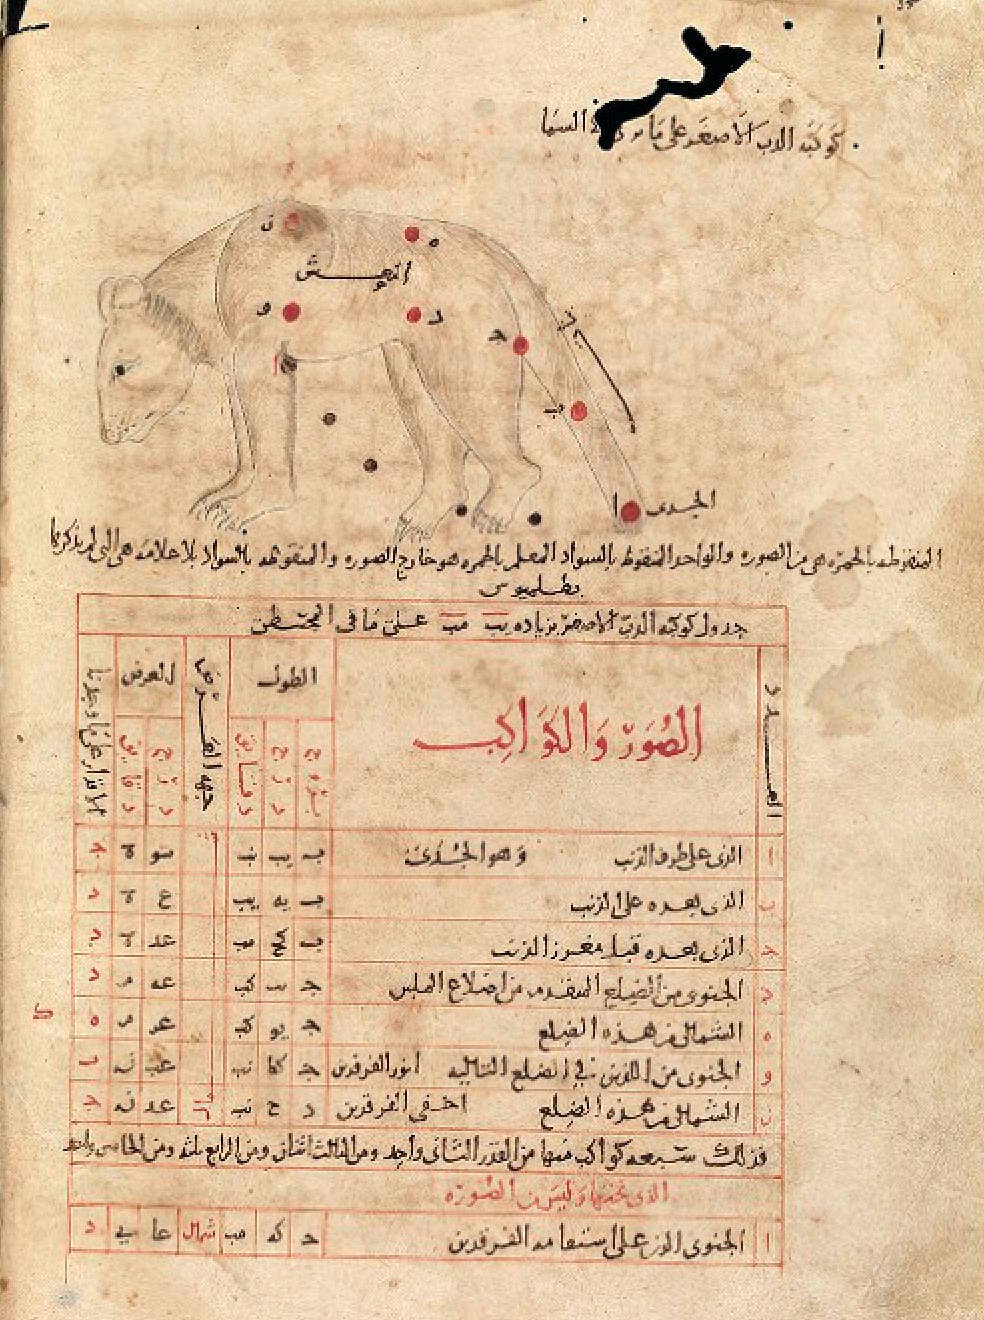 كوكبة الدب الاصغر على ما السما
ن
ه
النعش
و
د
ج
ا
ب
ا
الجدى
المنقوطه بالحمره هى من الصوره والواحد المنقوط بالسواد المعلم بالحمره هو خارج الصوره والمنقوطه بالسواد بلا علامه هى التى لم يذكرها
بطلميوس
جدول كوكبة الدب الاصغر بزياده يب مب على ما فى المجسطى
العدد
الصُوَرْ وَالكَوَاكِب
الطول
جهه العرض
العرض
الاقدار على ما وجدنا
بروج
درج
دقايق
درج
دقايق
ا الذى على طرف الذنب وهو الجدى ب يب نب سو ة ج
ب الذى بعده على الذنب ب يه يب ع ة د
ج الذى بعده قبل مغرز الذنب ب مب عد ة د
د الجنوبى من الضلع المتقدم من اضلاع ج كب عه م د
ه الشمالى من هذه الضلع ج يو كب عز م ه
و الجنوبى من اللذين فى الضلع التاليه انور الفرقدين ج كا نب عب ن ب
ز الشمالى من هذه الضلع اخفى الفرقدين د ح نب عد ن ج
فذلك سبعه كواكب منها من القدر الثانى واحد ومن الثالث اثنان ومن الرابع ثلثه ومن الخامس واحد
الذى تحتها وليس من الصوره
ا الجنوبى الذى على استقامه الفرقدين ج كه مب شمال عا ي د